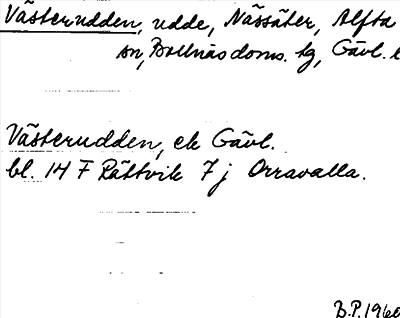 Västerudden, udde, Nässäter, Alfta
sn, Bollnäs doms. tg, Gävl. l
Västerudden, ek Gävl.
bl. 14 F Rättvik 7 j Orravalla.
B.P. 1960